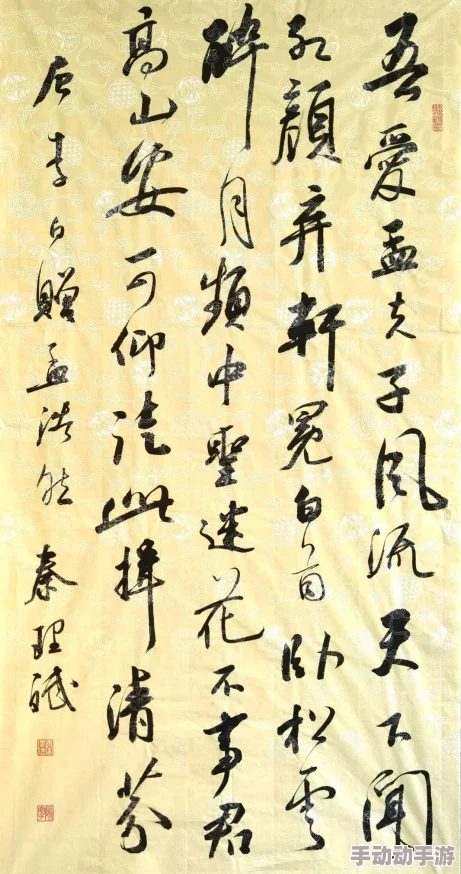 吾愛孟夫子風流天下聞
紅顔弃軒冕白首卧松雲
醉月頻中聖迷花不事君
高山安可仰徒此揖清芬
唐李白贈孟浩然 秦理
手动动手游